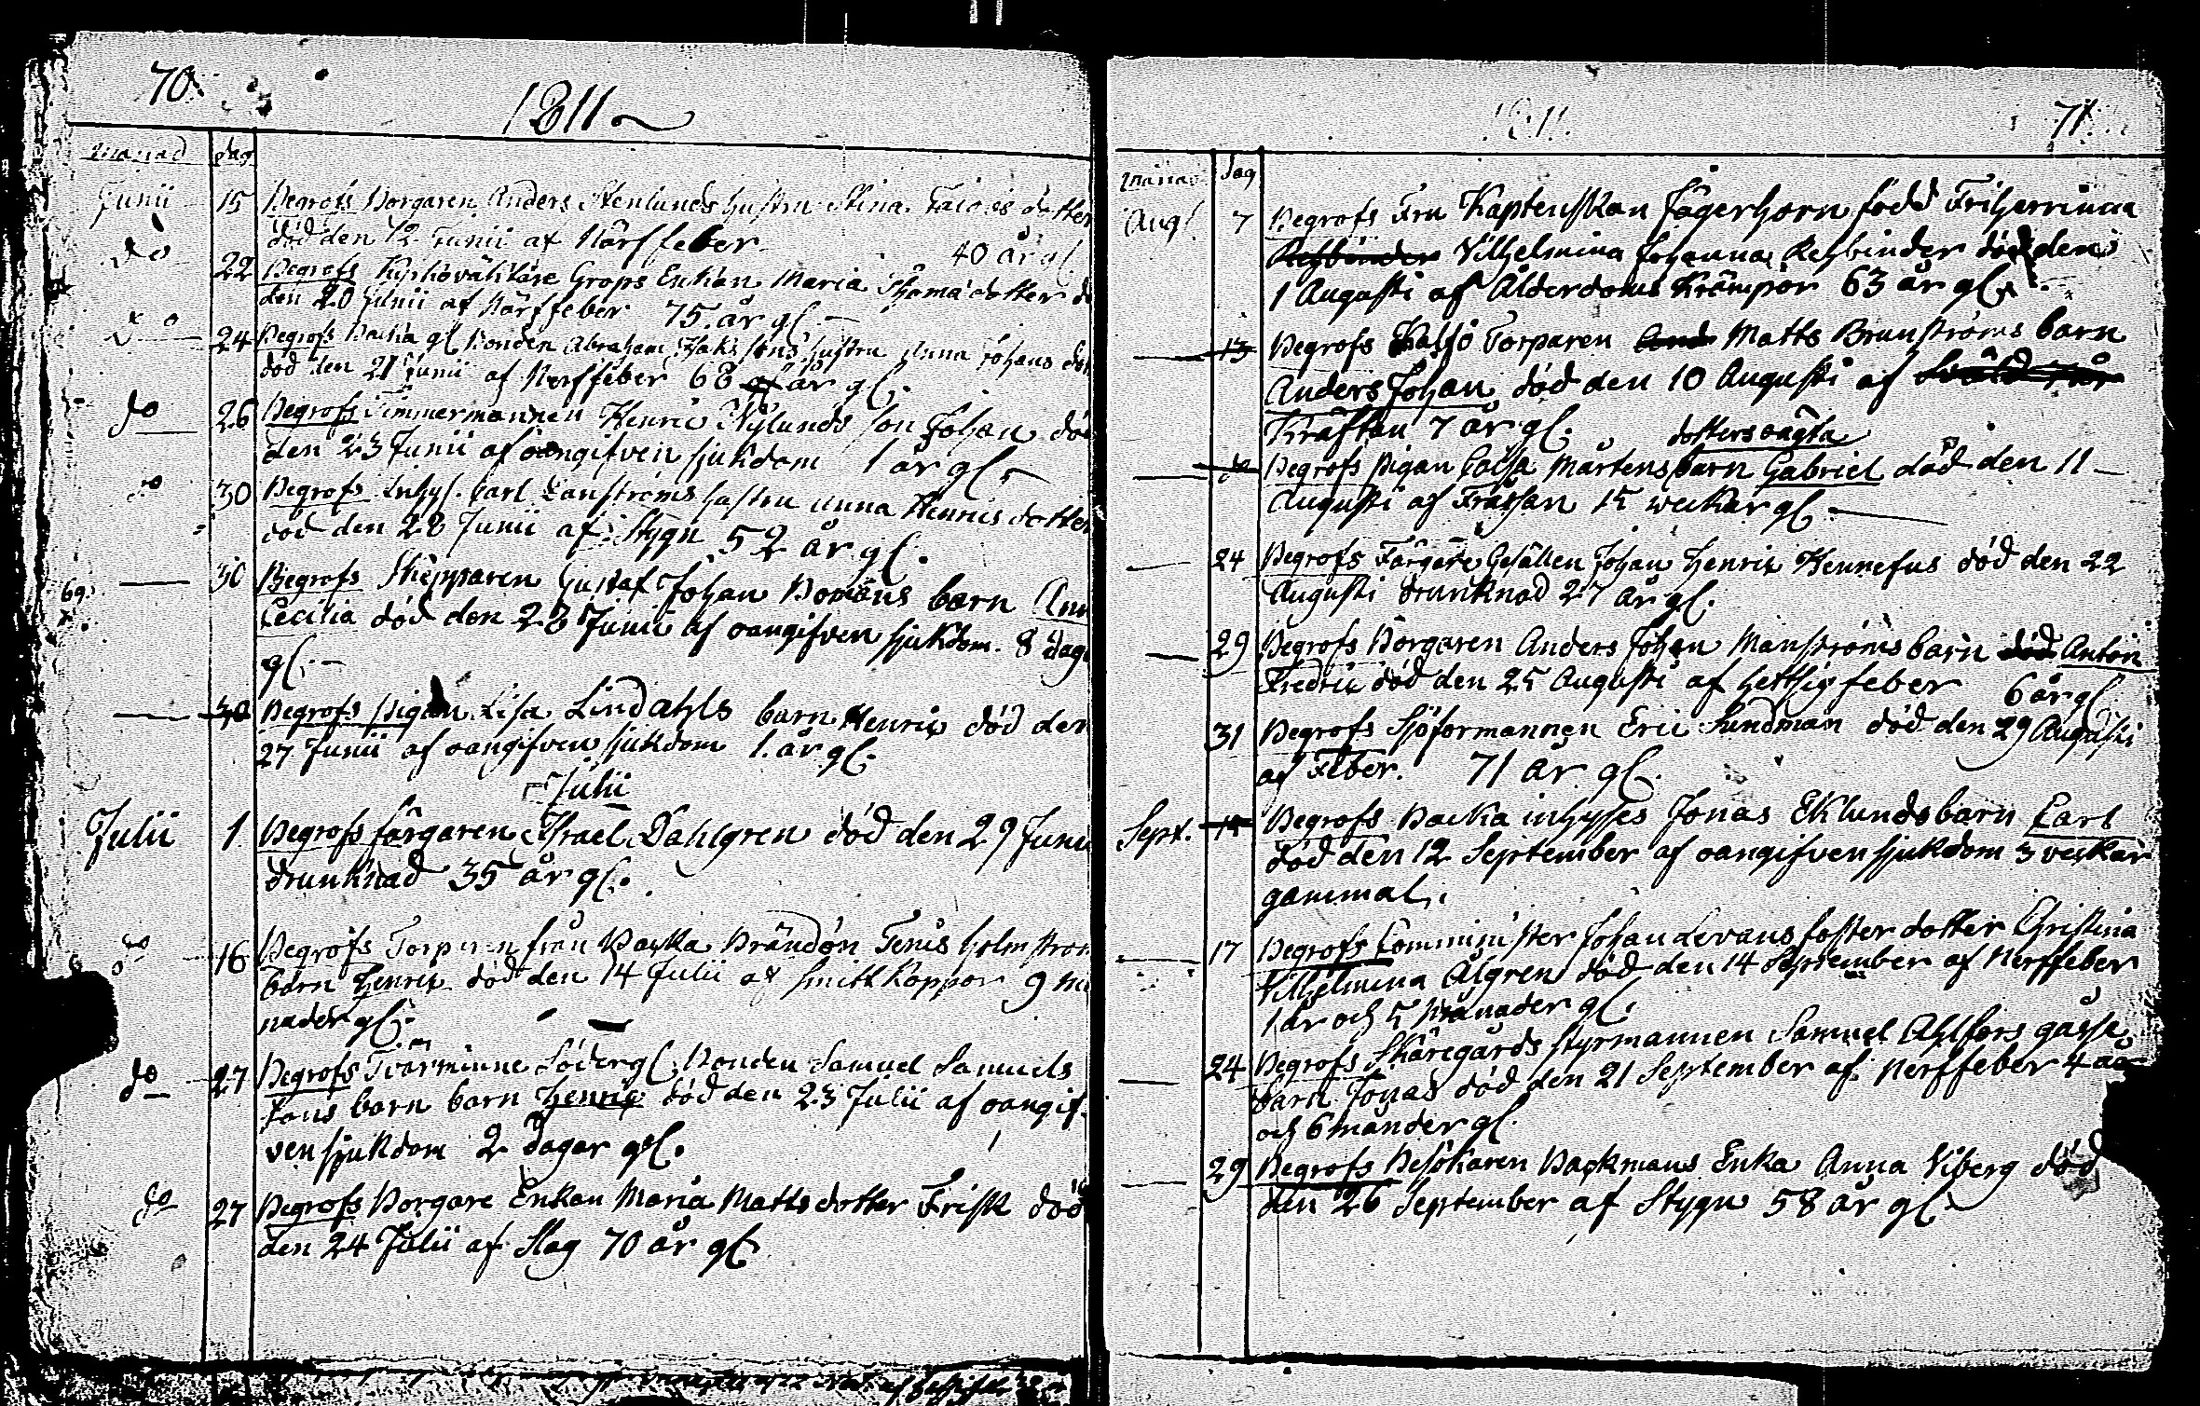 70.
1811
Månad dag
Junii 15 Begrofs Borgaren Anders Stenlunds hustru Stina Jacobs dotter
död den 12 Junii af Närffeber 40 år gl.
do 22 Begrofs Kyrkoväktare Grops Enkan Maria Thomasdotter
den 20 Junii af Närffeber 75 år gl.
do 24 Begrofs Backa gl Bonden Abraham Isaks sons hustru Anna Johans
död den 21 Junii af Nerffeber 68 år gl.
do 26 Begrofs Timmermannen Henric Nylunds son Johan död
den 23 Junii af oangifven sjukdom 1 år gl
do 30 Begrofs Inhys. Carl Lanströms hustru Anna Henrics dotter
död den 28 Junii af Stygn 52 år gl.
30 Begrofs Skepparen Gustaf Johan Bomans barn
69.
Cecilia död den 28 Junii af oangifven sjukdom. 8 dag
gl.
30 Begrofs pigan Lisa Lindahls barn Henrix död den
27 Junii af oangifven sjukdom 1. år gl.
Julii
Julii 1. Begrofs färgaren Israel Dahlgren död den 29 Junii
drunknad 35 år gl.
do 16 Begrofs Torparen från Backa Brändön Holmström
barn Henrix död den 14 Julii af Smitt Koppor 9 må
nader gl.
do 27 Begrofs Tvärminne Söderg. Bonden Samuel Samuels
sons barn barn Henrix död den 23 Julii af oangif-
ven sjukdom 2 dagar gl.
do 27 Begrofs Borgare Enkan Maria Mattsdotter Frisk död
den 24 Julii af Slag 70 år gl
1811.
71.
Månad dag
Augl 7 Begrofs Fru Kaptenskan Jägerhorn född Friherrinna
Rehbinder Vilhelmina Johanna Rehbinder död den
1 Augusti af Ålderdoms Krämpor 63 år gl.
13 Begrofs Torparen And Matts Brunströms barn
Anders Johan död den 10 Augusti af
Kräftan 7 år gl.
dotters oägta
Begrofs Pigan Caisa Mårtens barn Gabriel död den 11
Augusti af Frässan 15 weckor gl.
24 Begrofs Färgare Gesällen Johan Henrix Hennefus död den 22
Augusti drunknad 27 år gl.
29 Begrofs Borgaren Anders Johan Manströms barn död Anton
Fredric död den 25 Augusti af hettsig feber 6 år gl
31 Begrofs Sjöformannen Eric Sundman död den 29 Augusti
af Feber. 71 år gl.
Sept. 15 Begrofs Backa inhyses Jonas Eklunds barn Carl
död den 12 September af oangifven sjukdom 3 veckor
gammal.
17 Begrofs Comminister Johan Levans foster dotter Christina
Vilhelmina Algren död den 14 September af Nerffeber
1 år och 5 månader gl.
24 Begrofs Skäregårds styrmannen Samuel Ahlfors gosse
barn Jonas död den 21 September af Nerffeber 4 år
och 6 månder gl.
29 Begrofs Besökaren Backmans Enka Anna Viberg död
den 26 September af Stygn 58 år gl